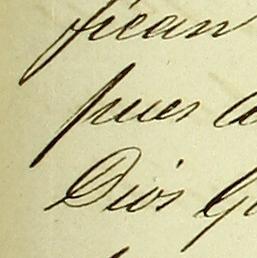 fican
pues
Dios